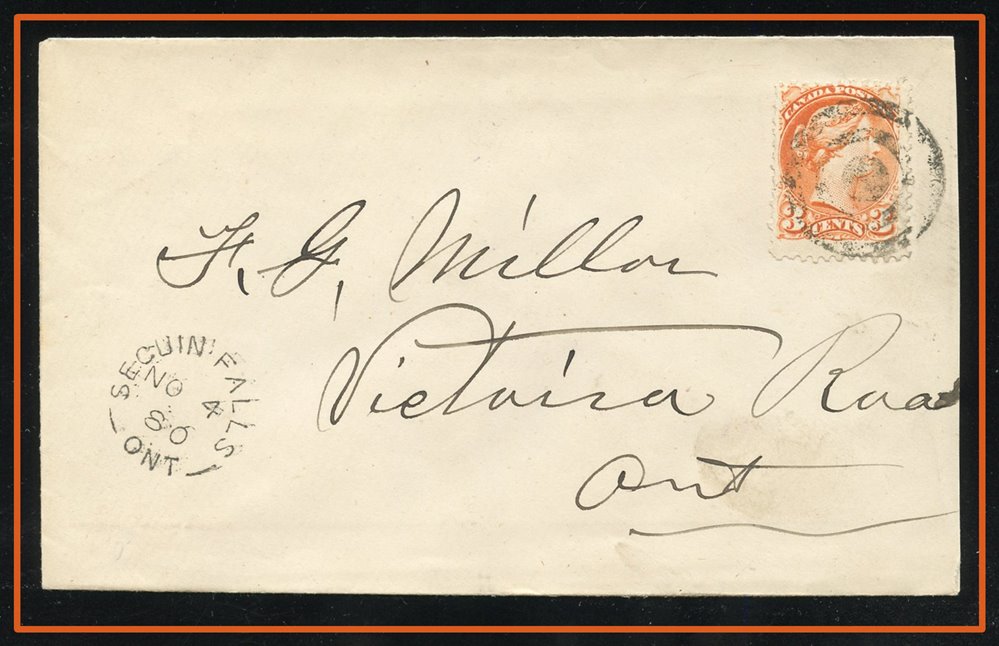 CANADA POST
3 CENTS 3
F. G. Millar
SEGUIN FALLS
NO 4
86
ONT
Victoria Road
Ont